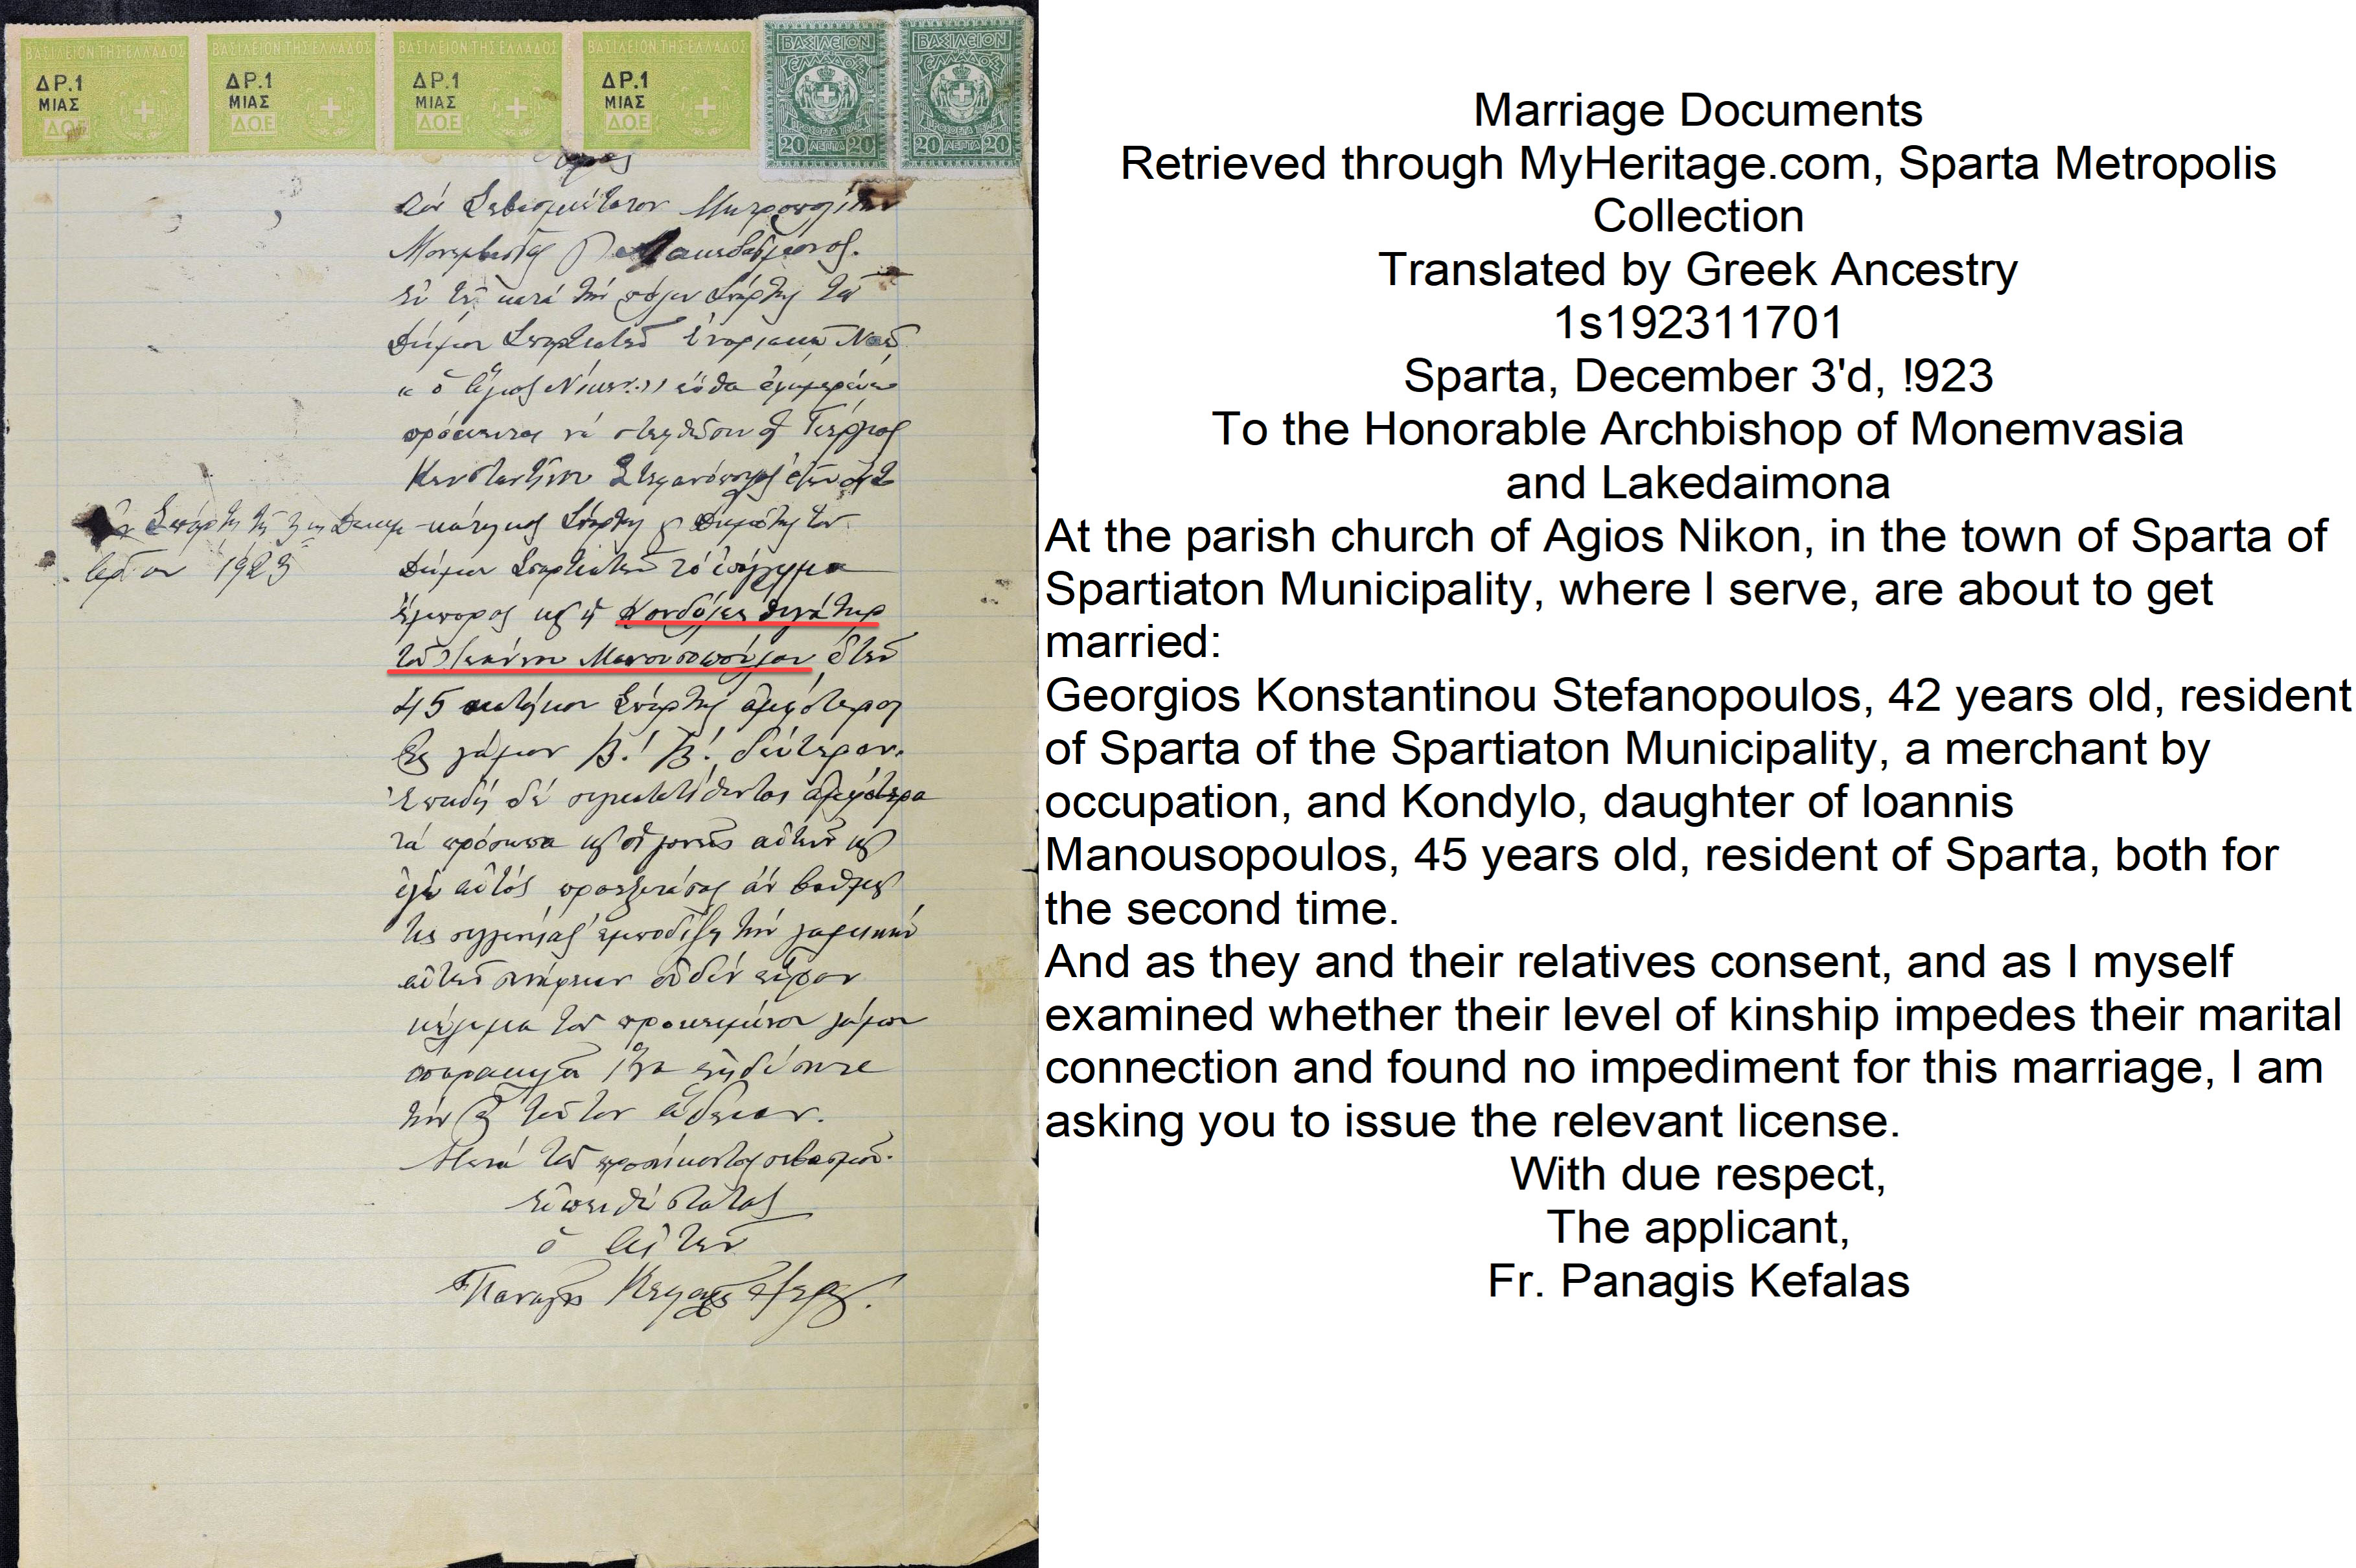 ΒΑΣΙΛΕΙΟΝ ΤΗΣ ΕΛΛΑΔΟΣ
ΔΡ.1
ΜΙΑΣ
Δ.Ο.Ε
ΒΑΣΙΛΕΙΟΝ ΤΗΣ ΕΛΛΑΔΟΣ
ΔΡ.1
ΜΙΑΣ
Δ.Ο.Ε
ΒΑΣΙΛΕΙΟΝ ΤΗΣ ΕΛΛΑΔΟΣ
ΔΡ.1
ΜΙΑΣ
Δ.Ο.Ε
ΒΑΣΙΛΕΙΟΝ ΤΗΣ ΕΛΛΑΔΟΣ
ΔΡ.1
ΜΙΑΣ
Δ.Ο.Ε
ΒΑΣΙΛΕΙΟΝ
ΕΛΛΑΔΟΣ
20 ΛΕΠΤΑ 20
ΒΑΣΙΛΕΙΟΝ
ΕΛΛΑΔΟΣ
20 ΛΕΠΤΑ 20
Πρὸς
τὸν Σεβασμιώτατον Μητροπολίτην
Μονεμβασίας Λακεδαίμονος.
Ἐν τῷ κατὰ τὴν πόλιν Σπάρτης τοῦ
Δήμου Σπαρτιατῶν ἐνοριακῷ Ναῷ
« ὁ Ἅγιος Νίκων » ἔνθα ἐφημερεύω
πρόκειται νὰ στεφθῶσιν ὁ Γεώργιος
Κωνσταντίνου Στεφανόπουλος ἐτῶν 42
κάτοικος Σπάρτης Δημότης τοῦ
Δήμου Σπαρτιατῶν τὸ ἐπάγγελμα
ἔμπορος καὶ ἡ Κονδύλω θυγάτηρ
τοῦ Ἰωάννου Μανουσοπούλου ἐτῶν
45 κατοίκου Σπάρτης ἀμφότεροι
εἰς γάμον Β! Β! δεύτερον.
Ἐπειδὴ δὲ συγκατατίθενται ἀμφότερα
τὰ πρόσωπα καὶ οἱ γονεῖς αὐτῶν καὶ
ἐγὼ αὐτὸς προεξετάσας ἂν βαθμὸς
τις συγγενείας ἐμποδίζῃ τὴν γαμικὴν
αὐτῶν συνάφειαν οὐδὲν εὗρον
κώλυμα τοῦ προκειμένου γάμου
παρακαλῶ ἵνα ἐκδώσητε
τὴν ἐπὶ τούτου ἄδειαν.
Μετὰ τοῦ προσήκοντος σεβασμοῦ.
Εὐπειθέστατος
ὁ αἰτῶν
Παναγῆς Κεφαλᾶς
Ἐν Σπάρτῃ τῇ 3 Δεκεμ-
βρίου 1923
Marriage Documents
Retrieved through MyHeritage.com, Sparta Metropolis
Collection
Translated by Greek Ancestry
1s192311701
Sparta, December 3'd, !923
To the Honorable Archbishop of Monemvasia
and Lakedaimona
At the parish church of Agios Nikon, in the town of Sparta of
Spartiaton Municipality, where I serve, are about to get
married:
Georgios Konstantinou Stefanopoulos, 42 years old, resident
of Sparta of the Spartiaton Municipality, a merchant by
occupation, and Kondylo, daughter of Ioannis
Manousopoulos, 45 years old, resident of Sparta, both for
the second time.
And as they and their relatives consent, and as I myself
examined whether their level of kinship impedes their marital
connection and found no impediment for this marriage, I am
asking you to issue the relevant license.
With due respect,
The applicant,
Fr. Panagis Kefalas